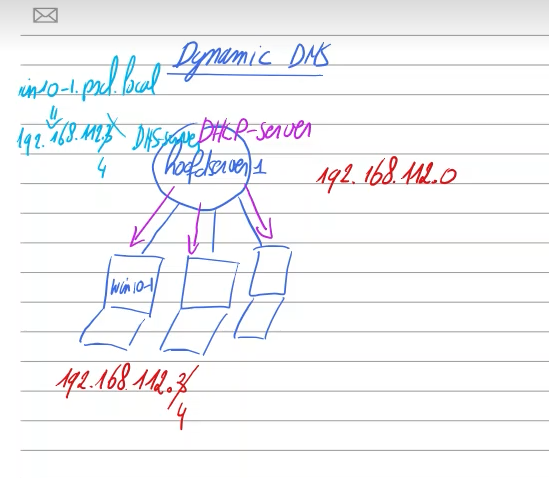 Dynamic DNS
win10-1.pxl.local
192.168.112.3
4
DNS-server
DHCP-server
hoofdserver1
192.168.112.0
win10-1
192.168.112.3
4